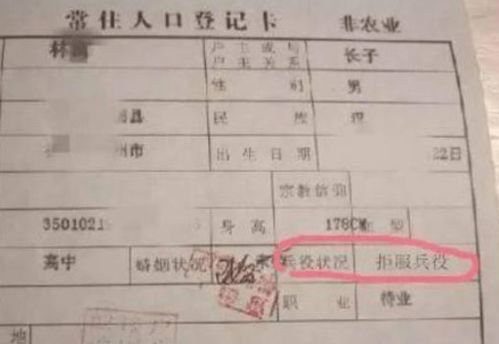 常住人口登记卡 非农业
林 户主或与户主关系 长子
性别 男
县 民族
市 出生日期 22日
宗教信仰
3501021 身高 178CM
高中 婚姻状况 未 兵役状况 拒服兵役
职业 待业
地